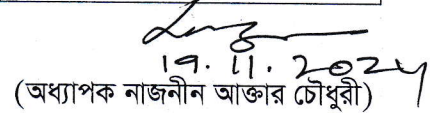 19. 11. 2024
(অধ্যাপক নাজনীন আক্তার চৌধুরী)